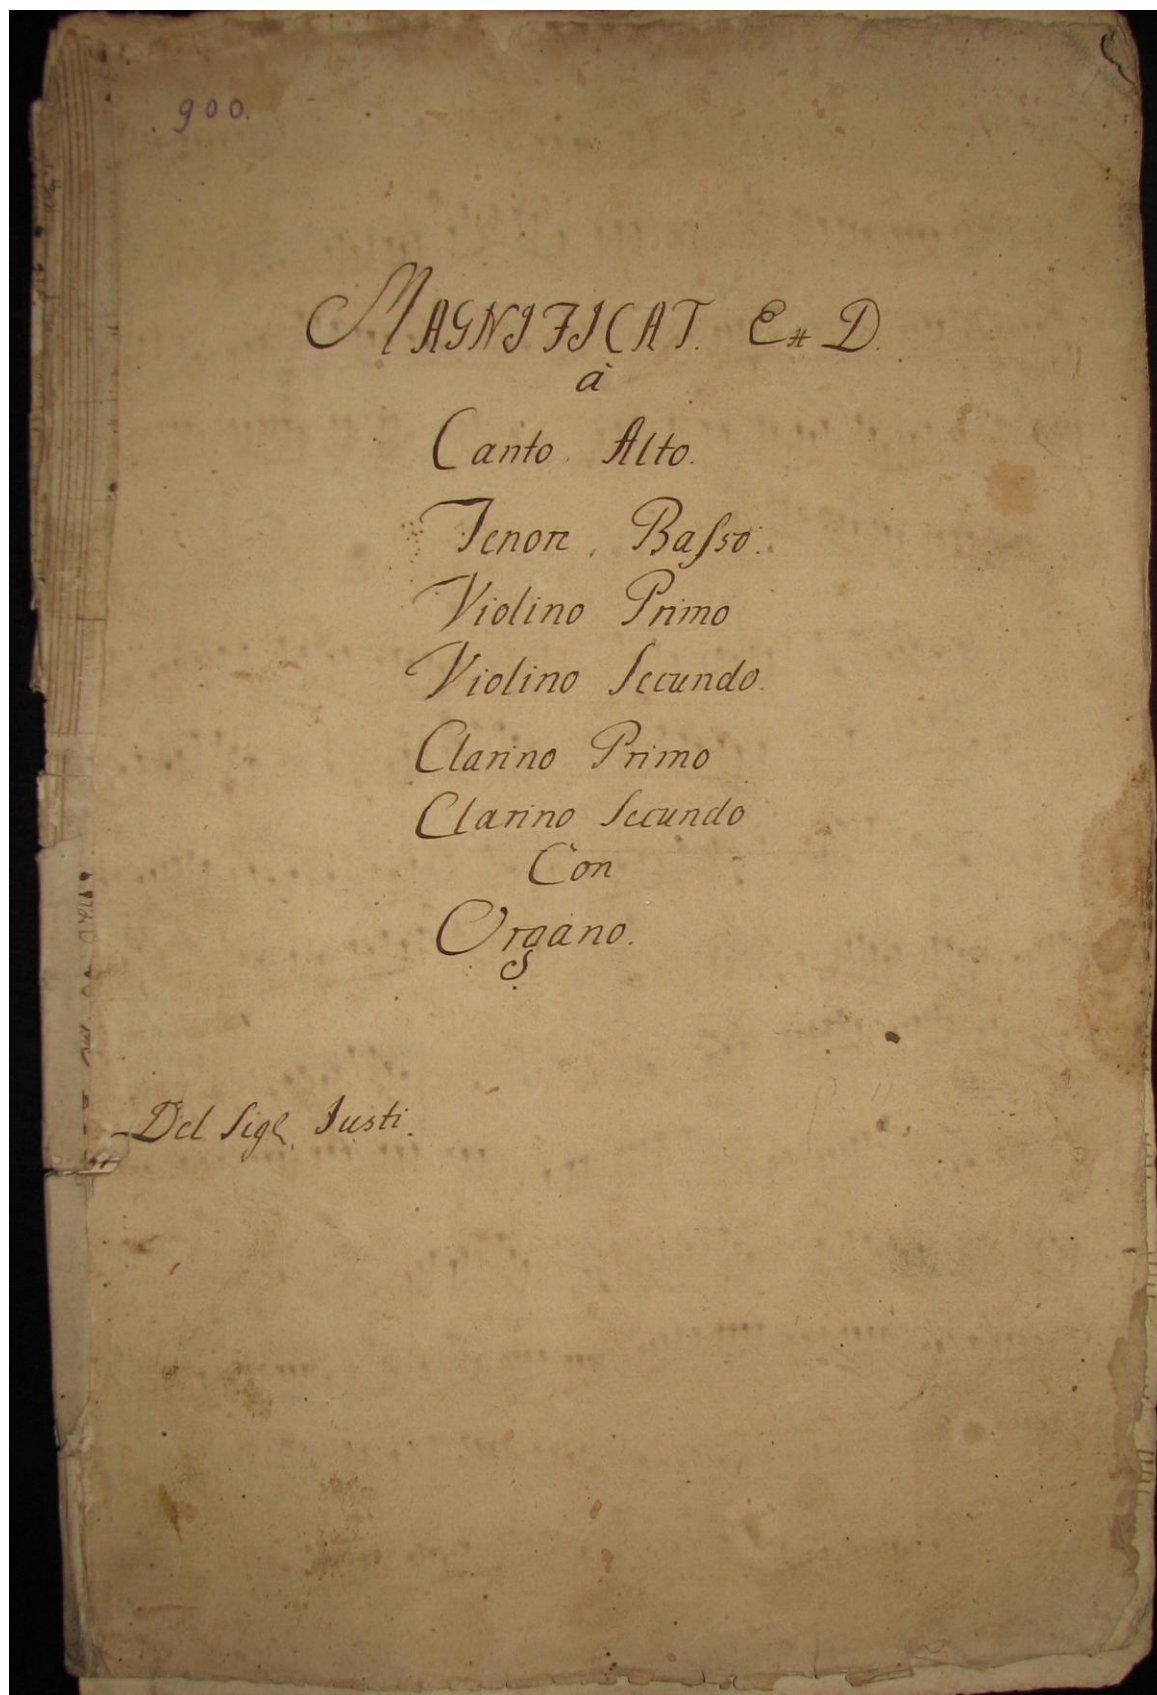 900.
MAGNIFICAT. E# D.
à
Canto. Alto.
Tenore, Basso.
Violino Primo
Violino Secundo.
Clarino Primo
Clarino Secundo
Con
Organo.
Del Sigl. Iusti.